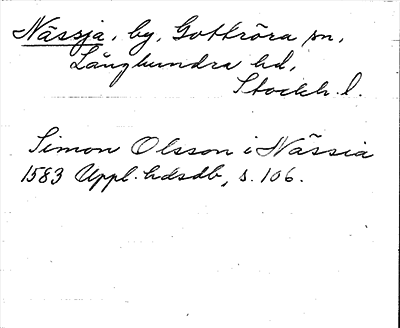 Nässja, by, Gottröra sn,
Långhundra hd,
Stockh. l.
Simon Olsson i Nässia
1583 Uppl. hdsdb, s. 106.